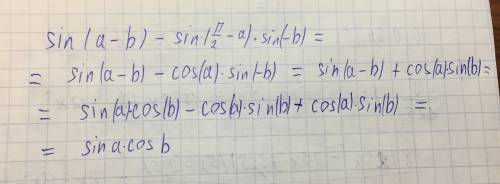 sin(a-b) - sin(π/2-a)·sin(-b) =
= sin(a-b) - cos(a)·sin(-b) = sin(a-b) + cos(a)·sin(b) =
= sin(a)·cos(b) - cos(a)·sin(b) + cos(a)·sin(b) =
= sin a·cos b